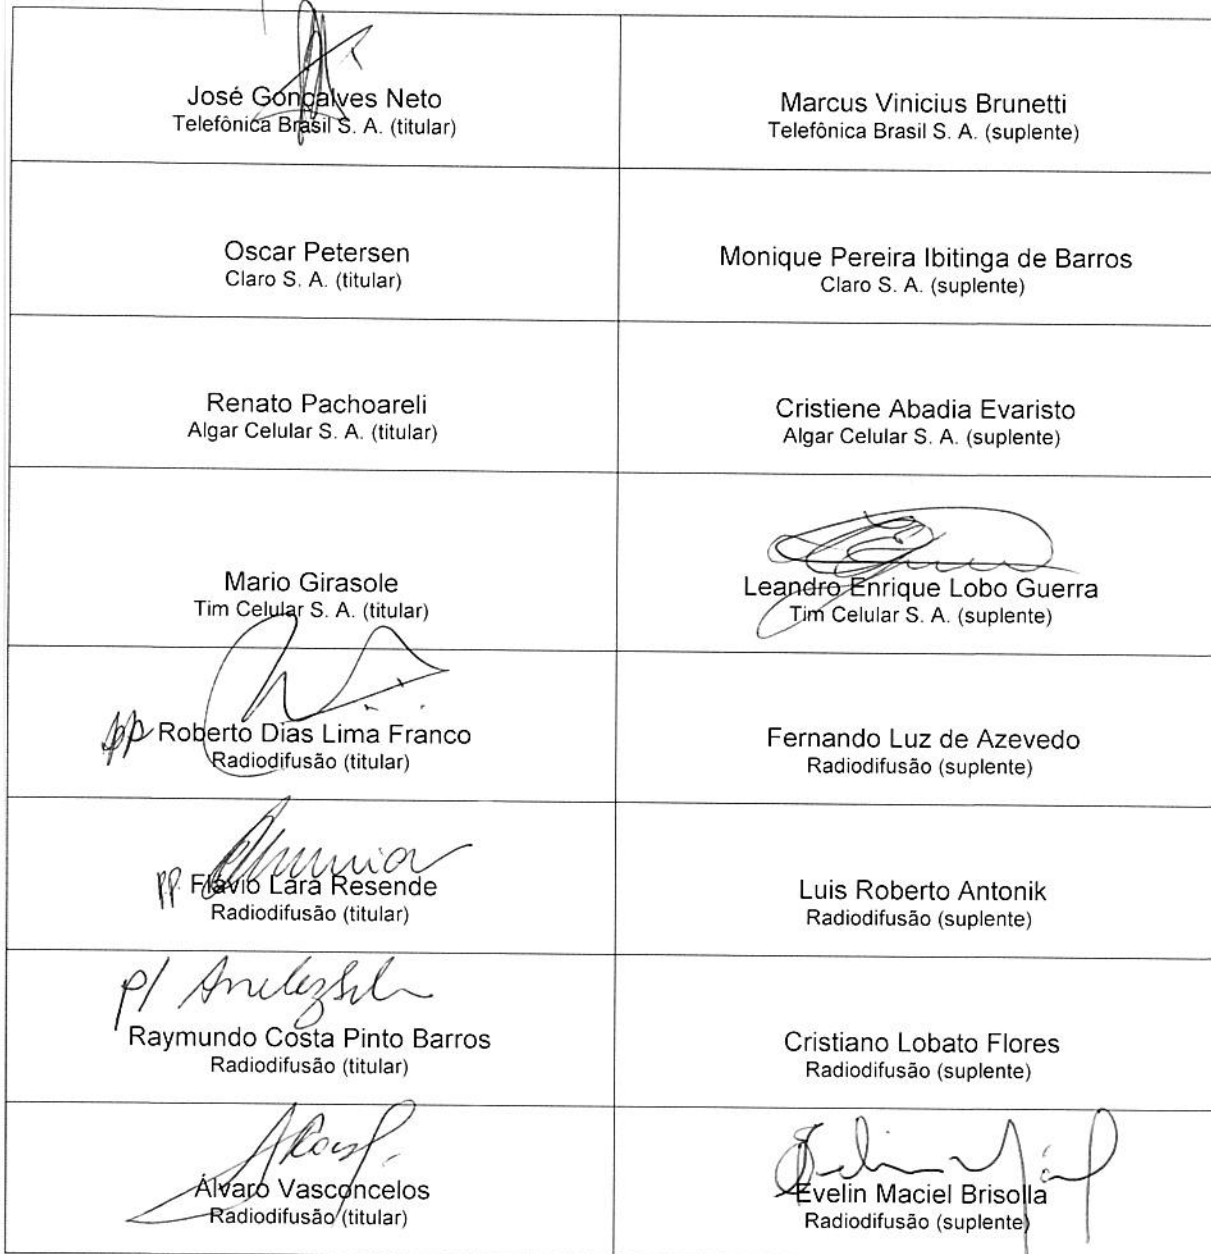 José Gonçalves Neto
Telefônica Brasil S. A. (titular)
Marcus Vinicius Brunetti
Telefônica Brasil S. A. (suplente)
Oscar Petersen
Claro S. A. (titular)
Monique Pereira Ibitinga de Barros
Claro S. A. (suplente)
Renato Pachoareli
Algar Celular S. A. (titular)
Cristiene Abadia Evaristo
Algar Celular S. A. (suplente)
Mario Girasole
Tim Celular S. A. (titular)
Leandro Enrique Lobo Guerra
Tim Celular S. A. (suplente)
pp Roberto Dias Lima Franco
Radiodifusão (titular)
Fernando Luz de Azevedo
Radiodifusão (suplente)
pp. Flávio Lara Resende
Radiodifusão (titular)
Luis Roberto Antonik
Radiodifusão (suplente)
p/
Raymundo Costa Pinto Barros
Radiodifusão (titular)
Cristiano Lobato Flores
Radiodifusão (suplente)
Álvaro Vasconcelos
Radiodifusão (titular)
Evelin Maciel Brisolla
Radiodifusão (suplente)